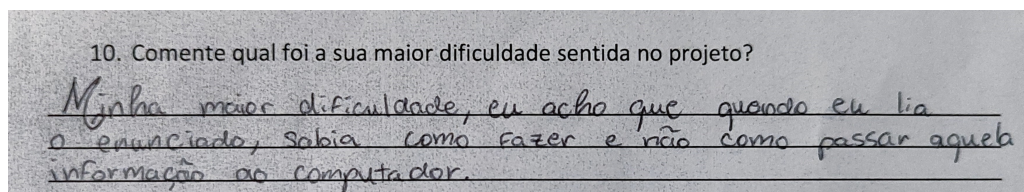 10. Comente qual foi a sua maior dificuldade sentida no projeto?
Minha maior dificuldade, eu acho que quando eu lia
o enunciado, sabia como fazer e não como passar aquela
informação ao computador.